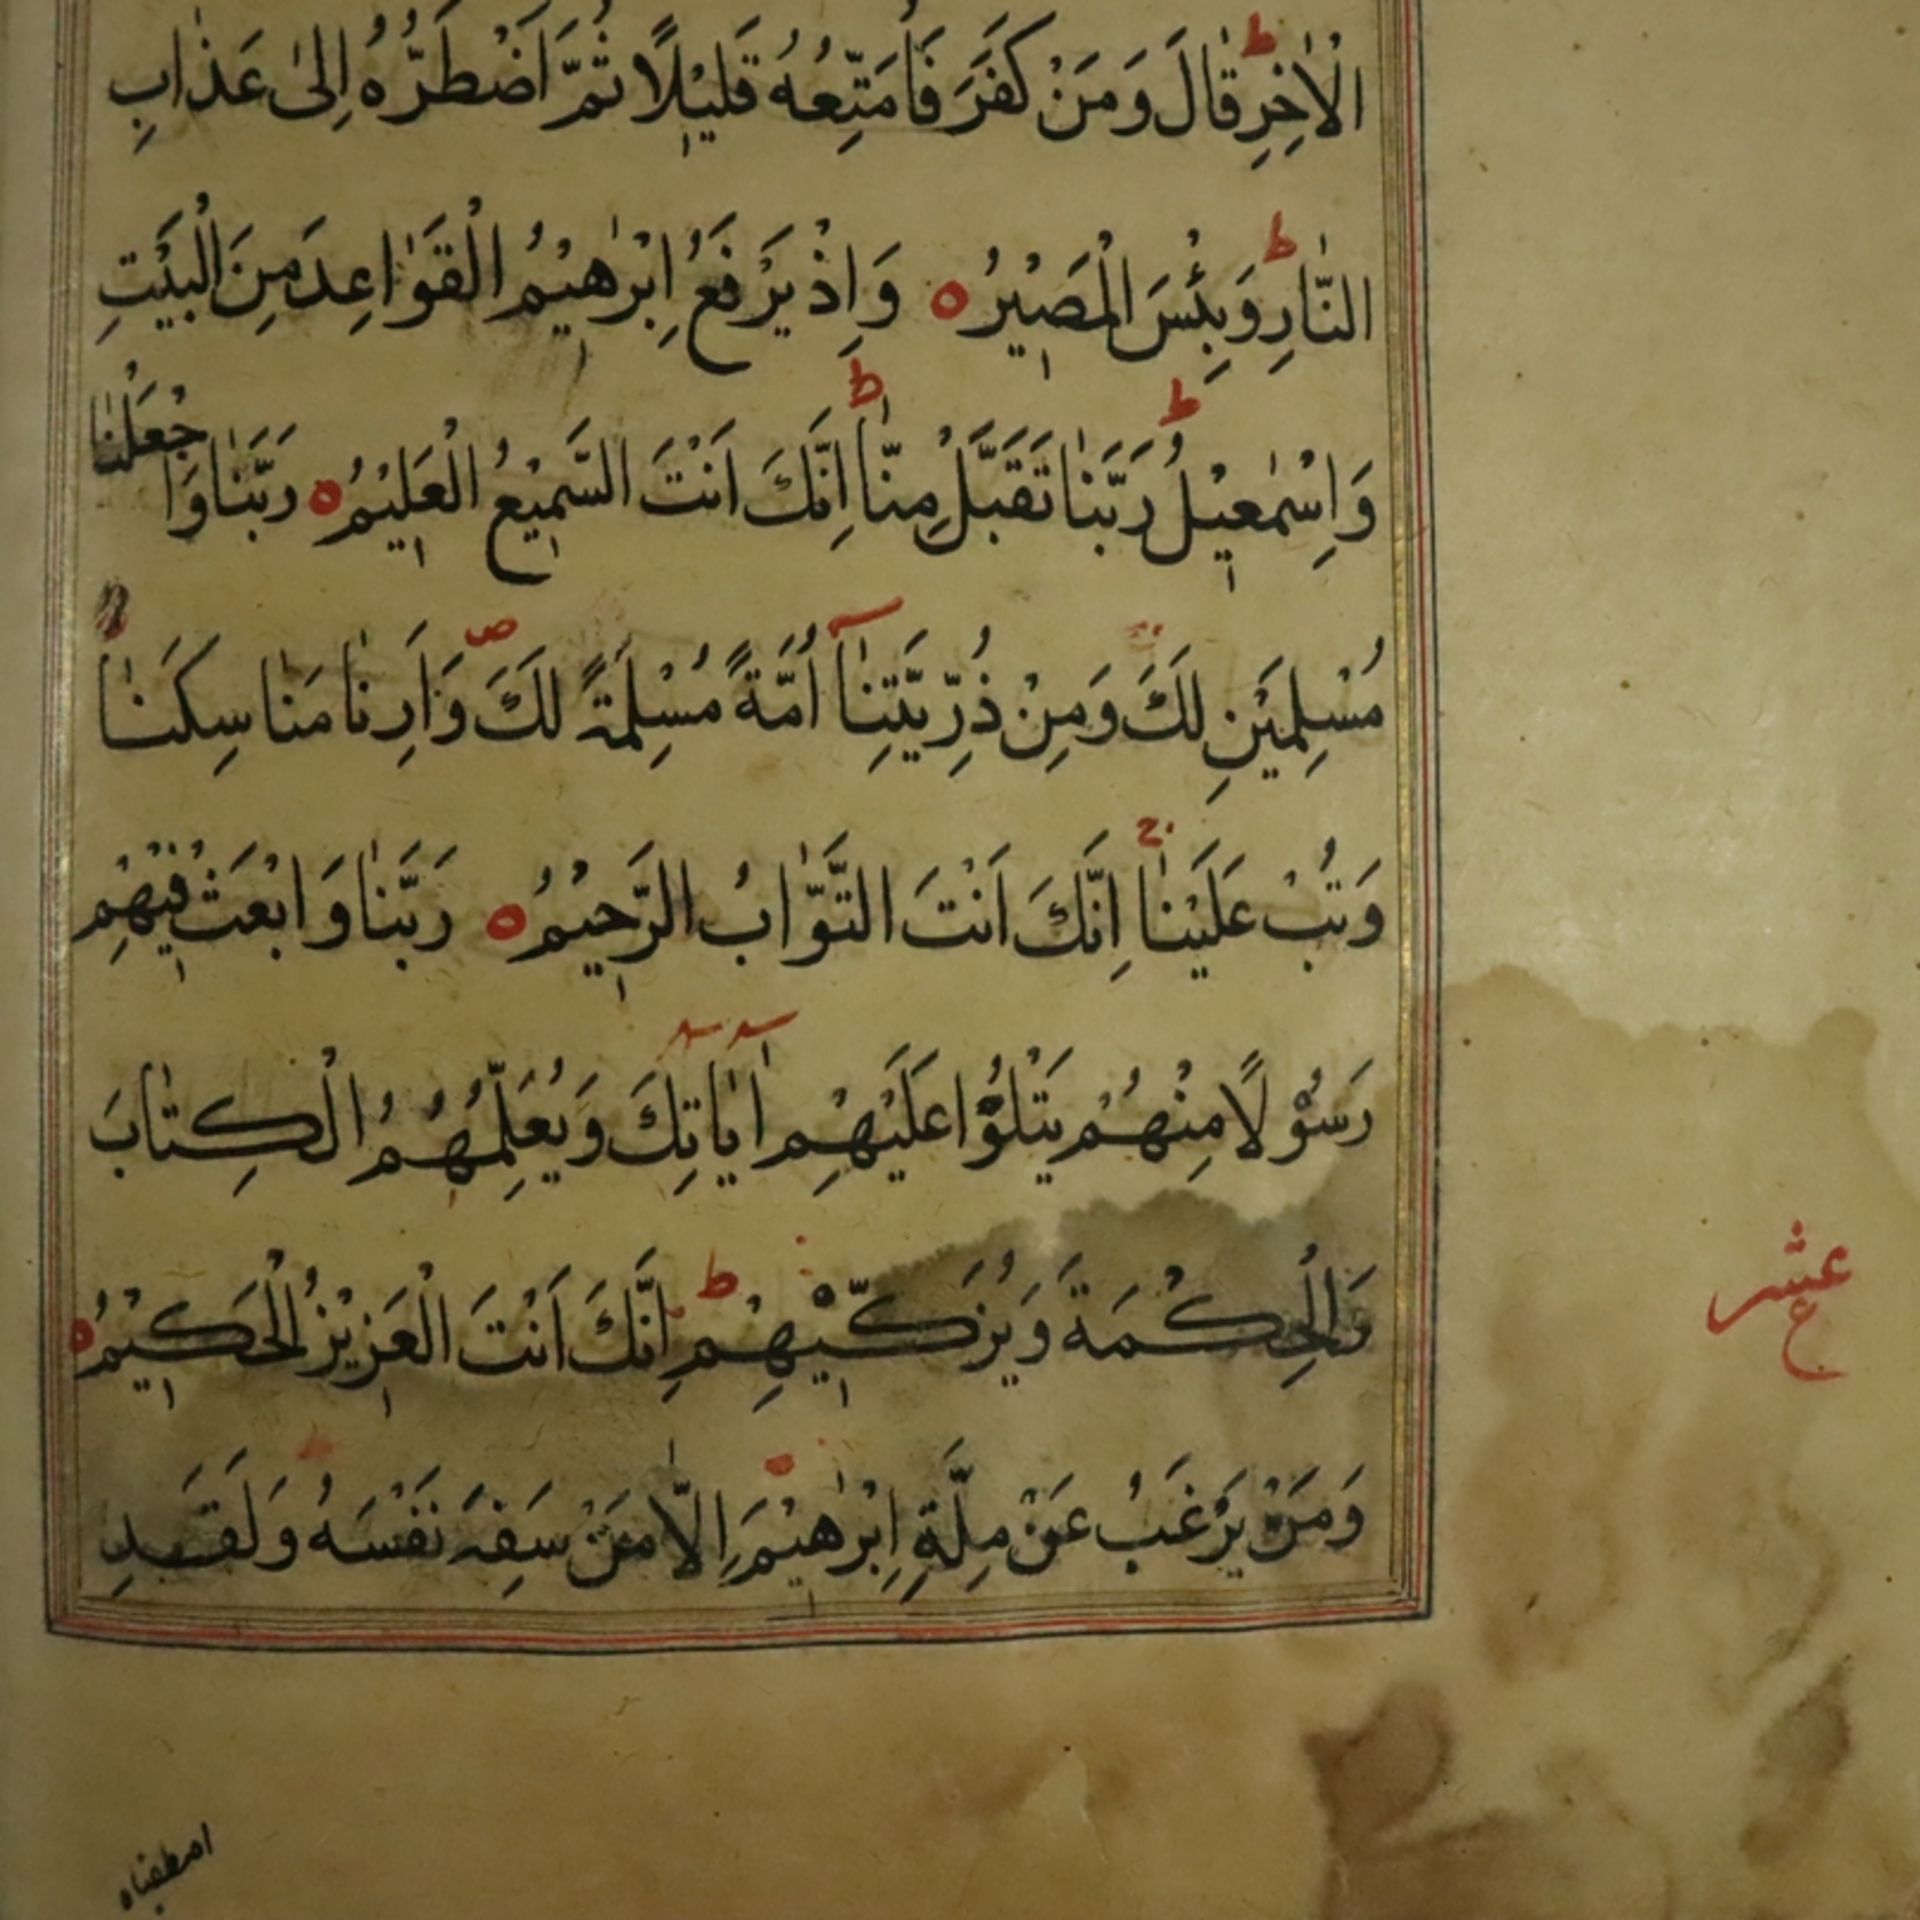 الْاٰخِرِ ط قَالَ وَمَنْ كَفَرَ فَاُمَتِّعُهُ قَلِيْلًا ثُمَّ اَضْطَرُّهُ اِلٰى عَذَابِ
النَّارِ ط وَبِئْسَ الْمَصِيْرُ ه وَاِذْ يَرْفَعُ اِبْرٰهِيْمُ الْقَوَاعِدَ مِنَ الْبَيْتِ
وَاِسْمٰعِيْلُ ط رَبَّنَا تَقَبَّلْ مِنَّا ط اِنَّكَ اَنْتَ السَّمِيْعُ الْعَلِيْمُ ه رَبَّنَا وَاجْعَلْنَا
مُسْلِمَيْنِ لَكَ وَمِنْ ذُرِّيَّتِنَآ اُمَّةً مُسْلِمَةً لَكَ ص وَاَرِنَا مَنَاسِكَنَا
وَتُبْ عَلَيْنَا ج اِنَّكَ اَنْتَ التَّوَّابُ الرَّحِيْمُ ه رَبَّنَا وَابْعَثْ فِيْهِمْ
رَسُوْلًا مِنْهُمْ يَتْلُوْا عَلَيْهِمْ اٰيَاتِكَ وَيُعَلِّمُهُمُ الْكِتَابَ
وَالْحِكْمَةَ وَيُزَكِّيْهِمْ ط اِنَّكَ اَنْتَ الْعَزِيْزُ الْحَكِيْمُ ه
عشر
ع
وَمَنْ يَرْغَبُ عَنْ مِلَّةِ اِبْرٰهِيْمَ اِلَّا مَنْ سَفِهَ نَفْسَهُ وَلَقَدِ
اصطفيناه